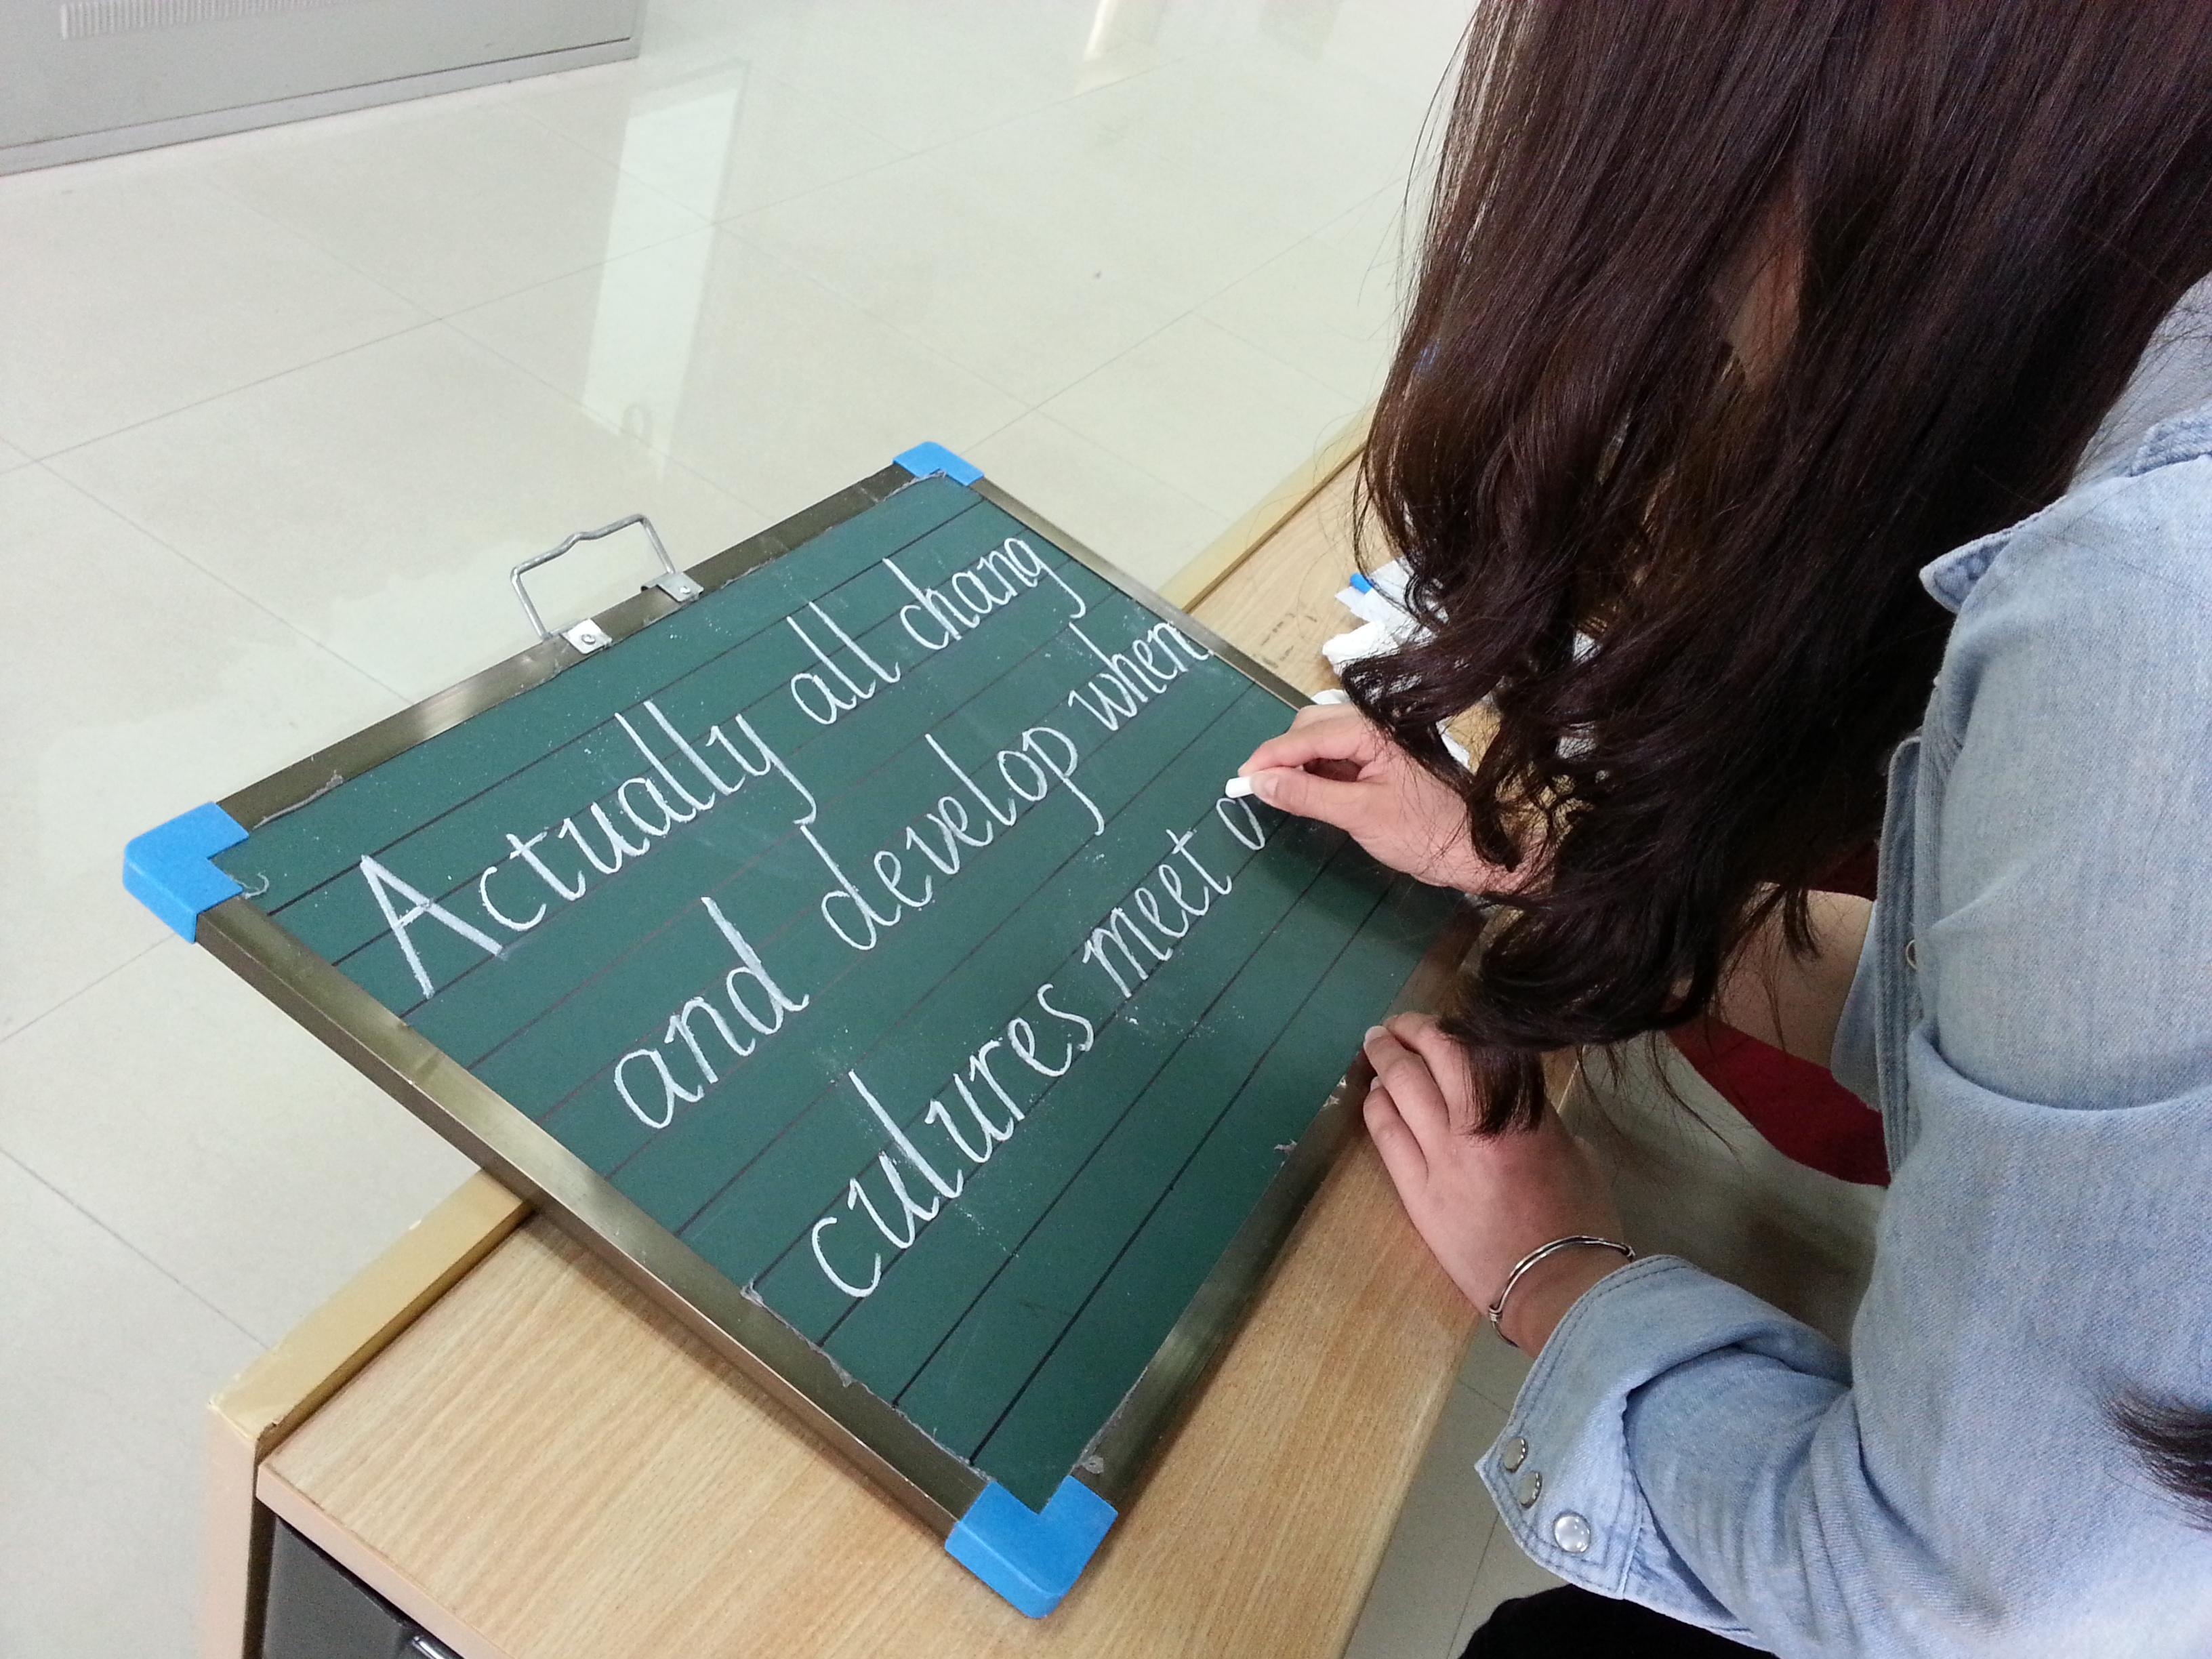 Actually all chang
and develop when
culures meet a